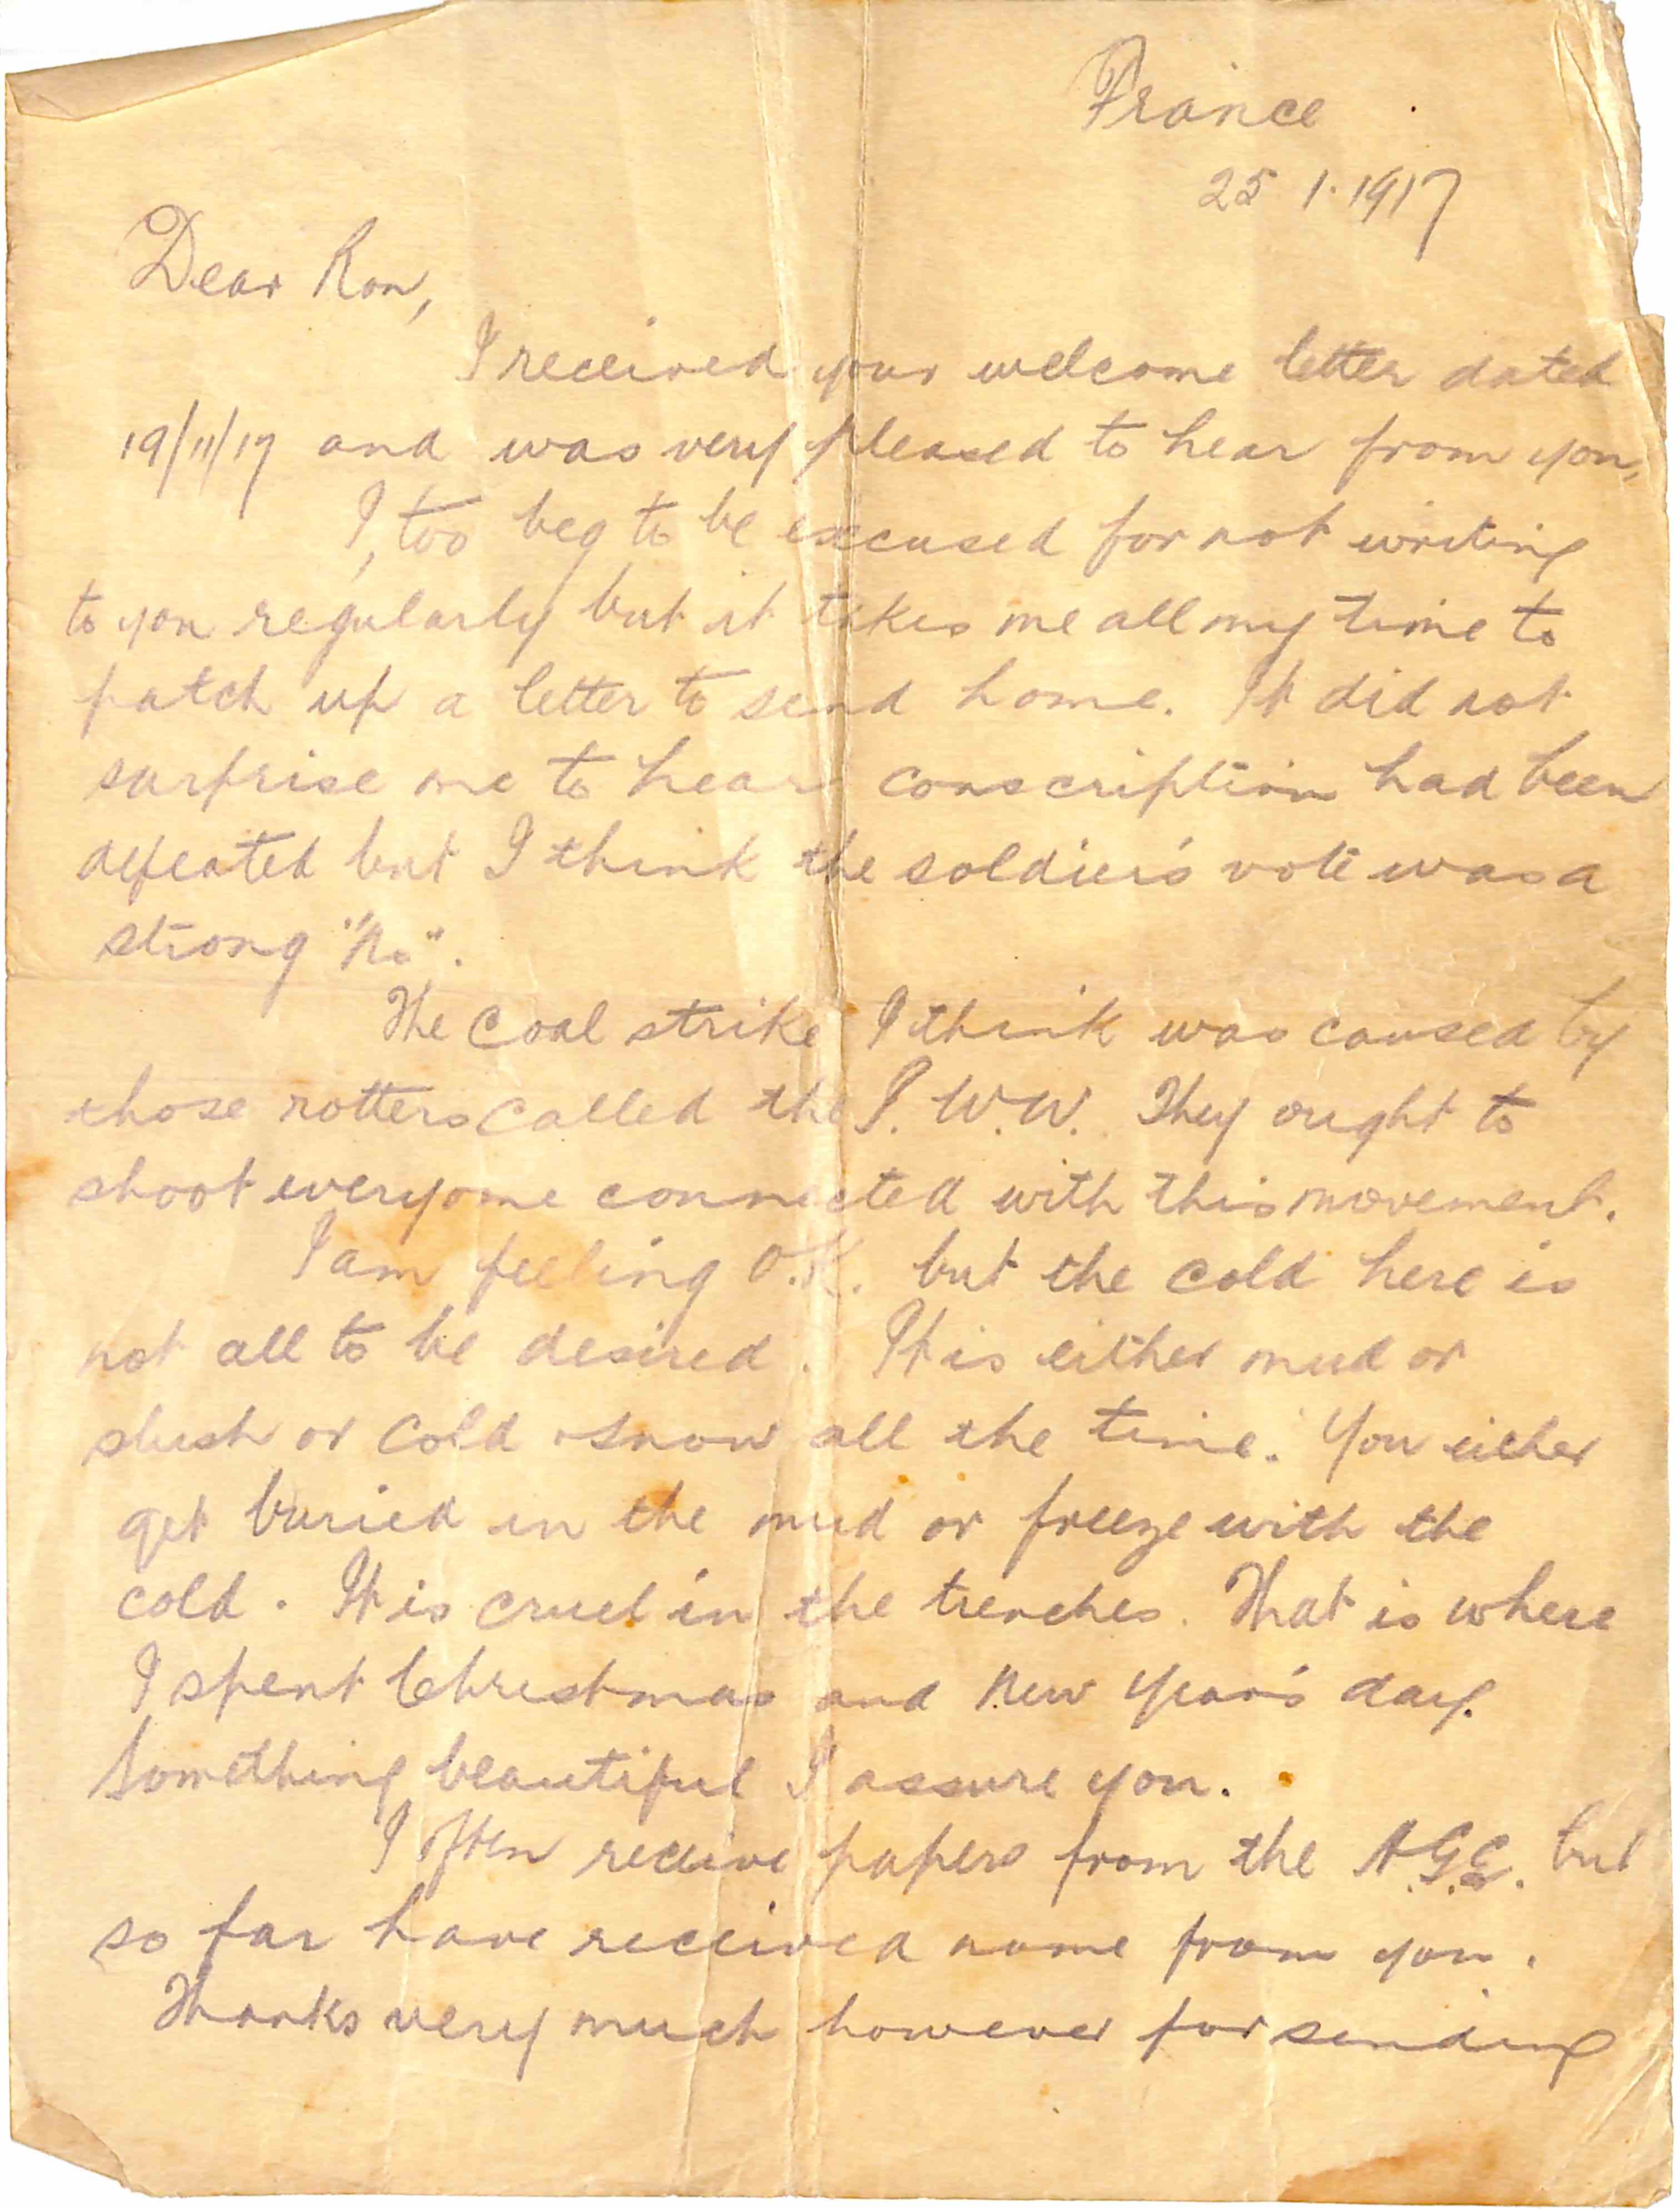 France
25 1. 1917
Dear Ron,
I received your welcome letter dated
19/11/17 and was very pleased to hear from you,
I, too beg to be excused for not writing
to you regularly but it takes me all my time to
patch up a letter to send home. It did not
surprise me to hear conscription had been
defeated but I think the soldier's vote was a
strong "No".
The coal strike I think was caused by
those rotters called the I. W. W. They ought to
shoot everyone connected with this movement.
I am feeling O.K. but the cold here is
not all to be desired. It is either mud or
slush or cold snow all the time. You either
get buried in the mud or freeze with the
cold. It is cruel in the trenches. That is where
I spent Christmas and New Year's day.
Something beautiful I assure you.
I often receive papers from the A.G.E. but
so far have received none from you.
Thanks very much however for sending